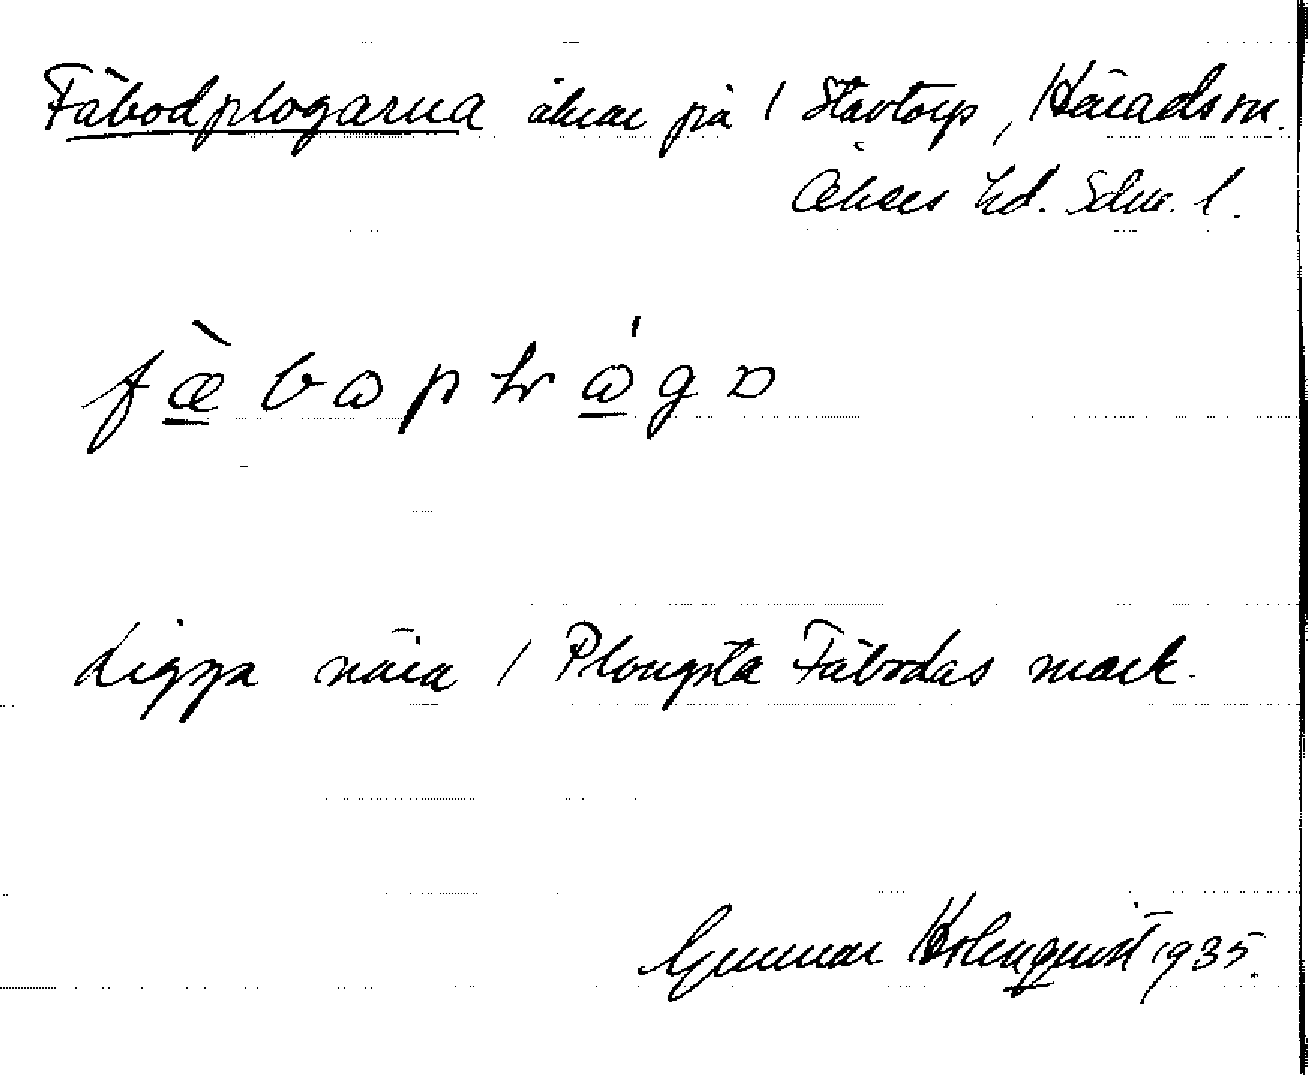 Fäbodplogarna åkrar på / Stavtorp, Häradsm.
Åkers hd. Sdm. l.
fæ̀baplɷ́gɑ
Ligga nära / Plongsta Fäbodas mark.
Gunnar Holmqvist 1935.